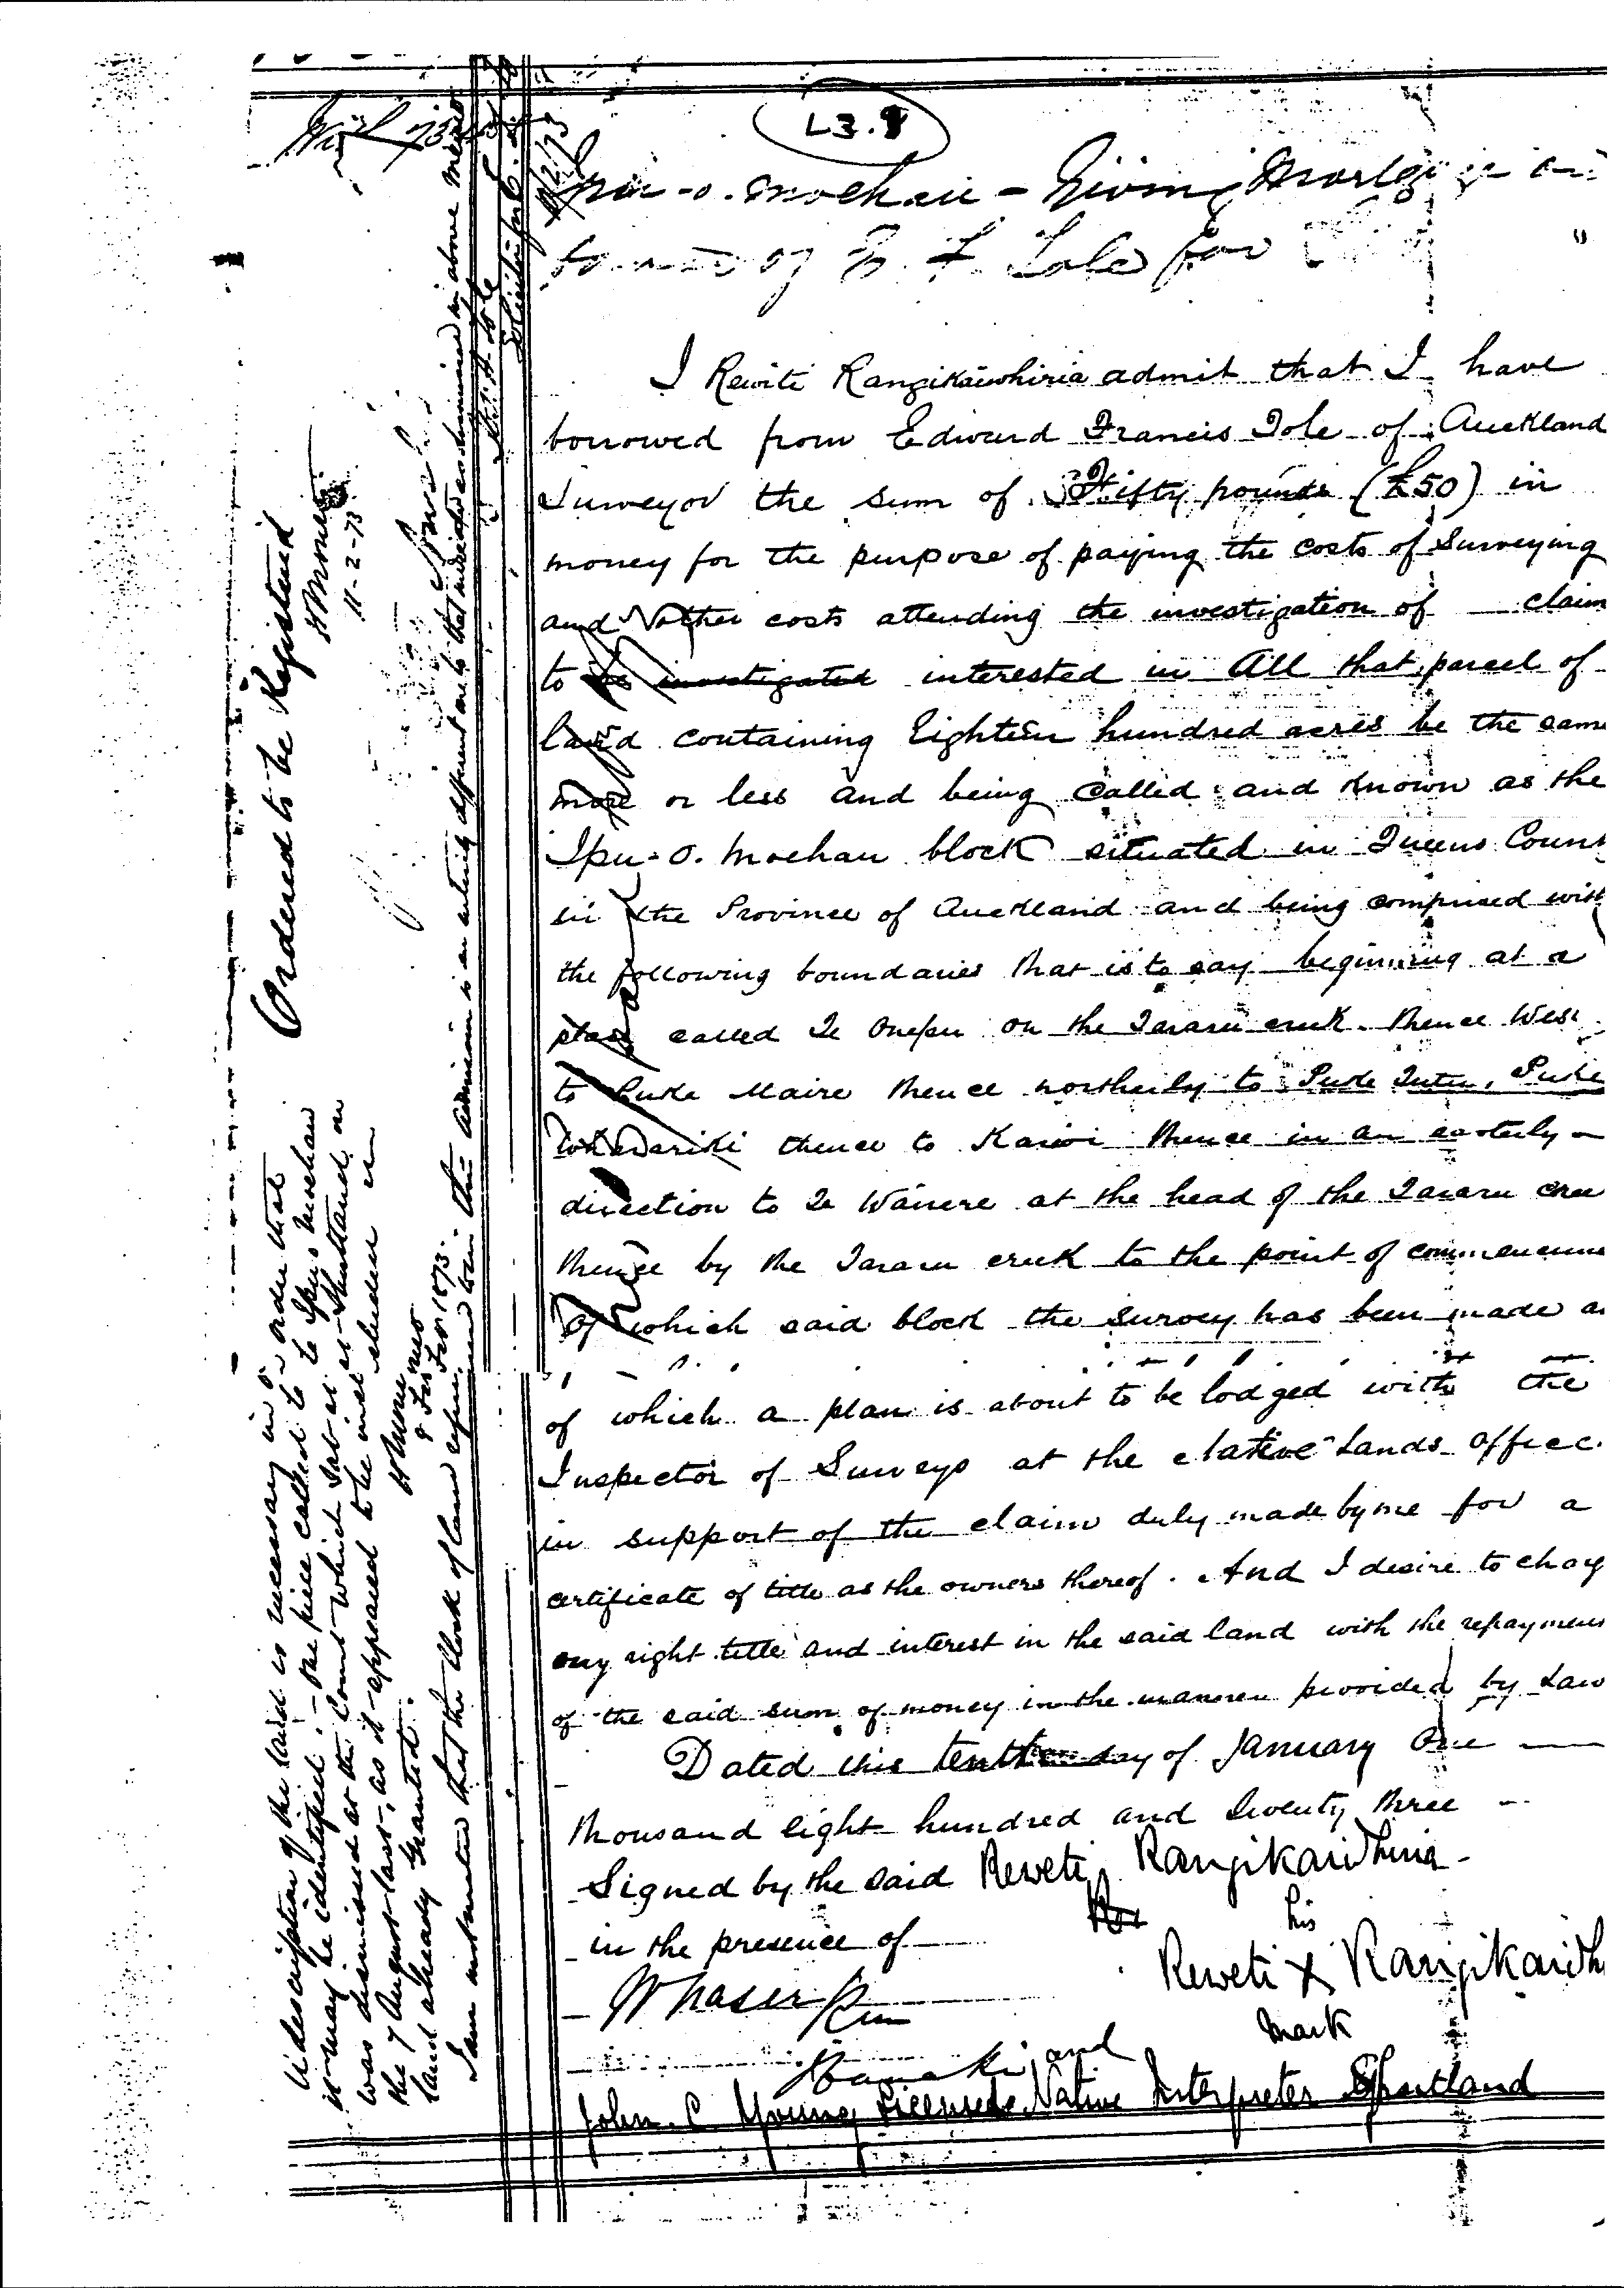 L3.8
Ipu-o-moehau - Giving Mortgage in
of E. F. Tole for
I Reweti Rangikaiwhiria admit that I have
borrowed from Edward Francis Tole of Auckland
Surveyor the sum of Fifty pounds (£50) in
money for the purpose of paying the costs of Surveying
and other costs attending the investigation of claim
to be investigated interested in All that parcel of
land containing Eighteen hundred acres be the same
more or less and being called and known as the
Ipu-o-moehau block situated in Queens Coun
in the Province of Auckland and being comprised with
the following boundaries that is to say beginning at a
place called Te Onepu on the Tararu creek thence West
to Puke Maire thence northerly to Puke Tutu, Puke
Whawariki thence to Kaiwi thence in an easterly
direction to Te Wairere at the head of the Tararu cree
thence by the Tararu creek to the point of commenceme
of which said block the survey has been made a
of which a plan is about to be lodged with the
Inspector of Surveys at the Native Lands Office
in support of the claim duly made by me for a
certificate of title as the owners thereof. And I desire to charg
my right title and interest in the said land with the repaymen
of the said sum of money in the manner provided by Law
Dated this tenth day of January One
thousand eight hundred and Seventy three
Signed by the said Reweti Rangikaiwhiria
in the presence of
his
Reweti X Rangikaiwh
mark
Hauraki and
John C Young Licensed Native Interpreter Shortland
Ordered to be Registered
H Munro
11-2-73
A description of the land is necessary in order that
it may be identified :- the piece called to to Ipu o Moehau
was dismissed at the Court which Sat at Shortland on
the 7 August last, as it appeared to be included in
land already granted.
H Munro
8 Feb 1873.
I am instructed that the block of land referred to in this admission is an entirely different one to that intended and mentioned in above memo
Solicitor for E. F.
11/2/73